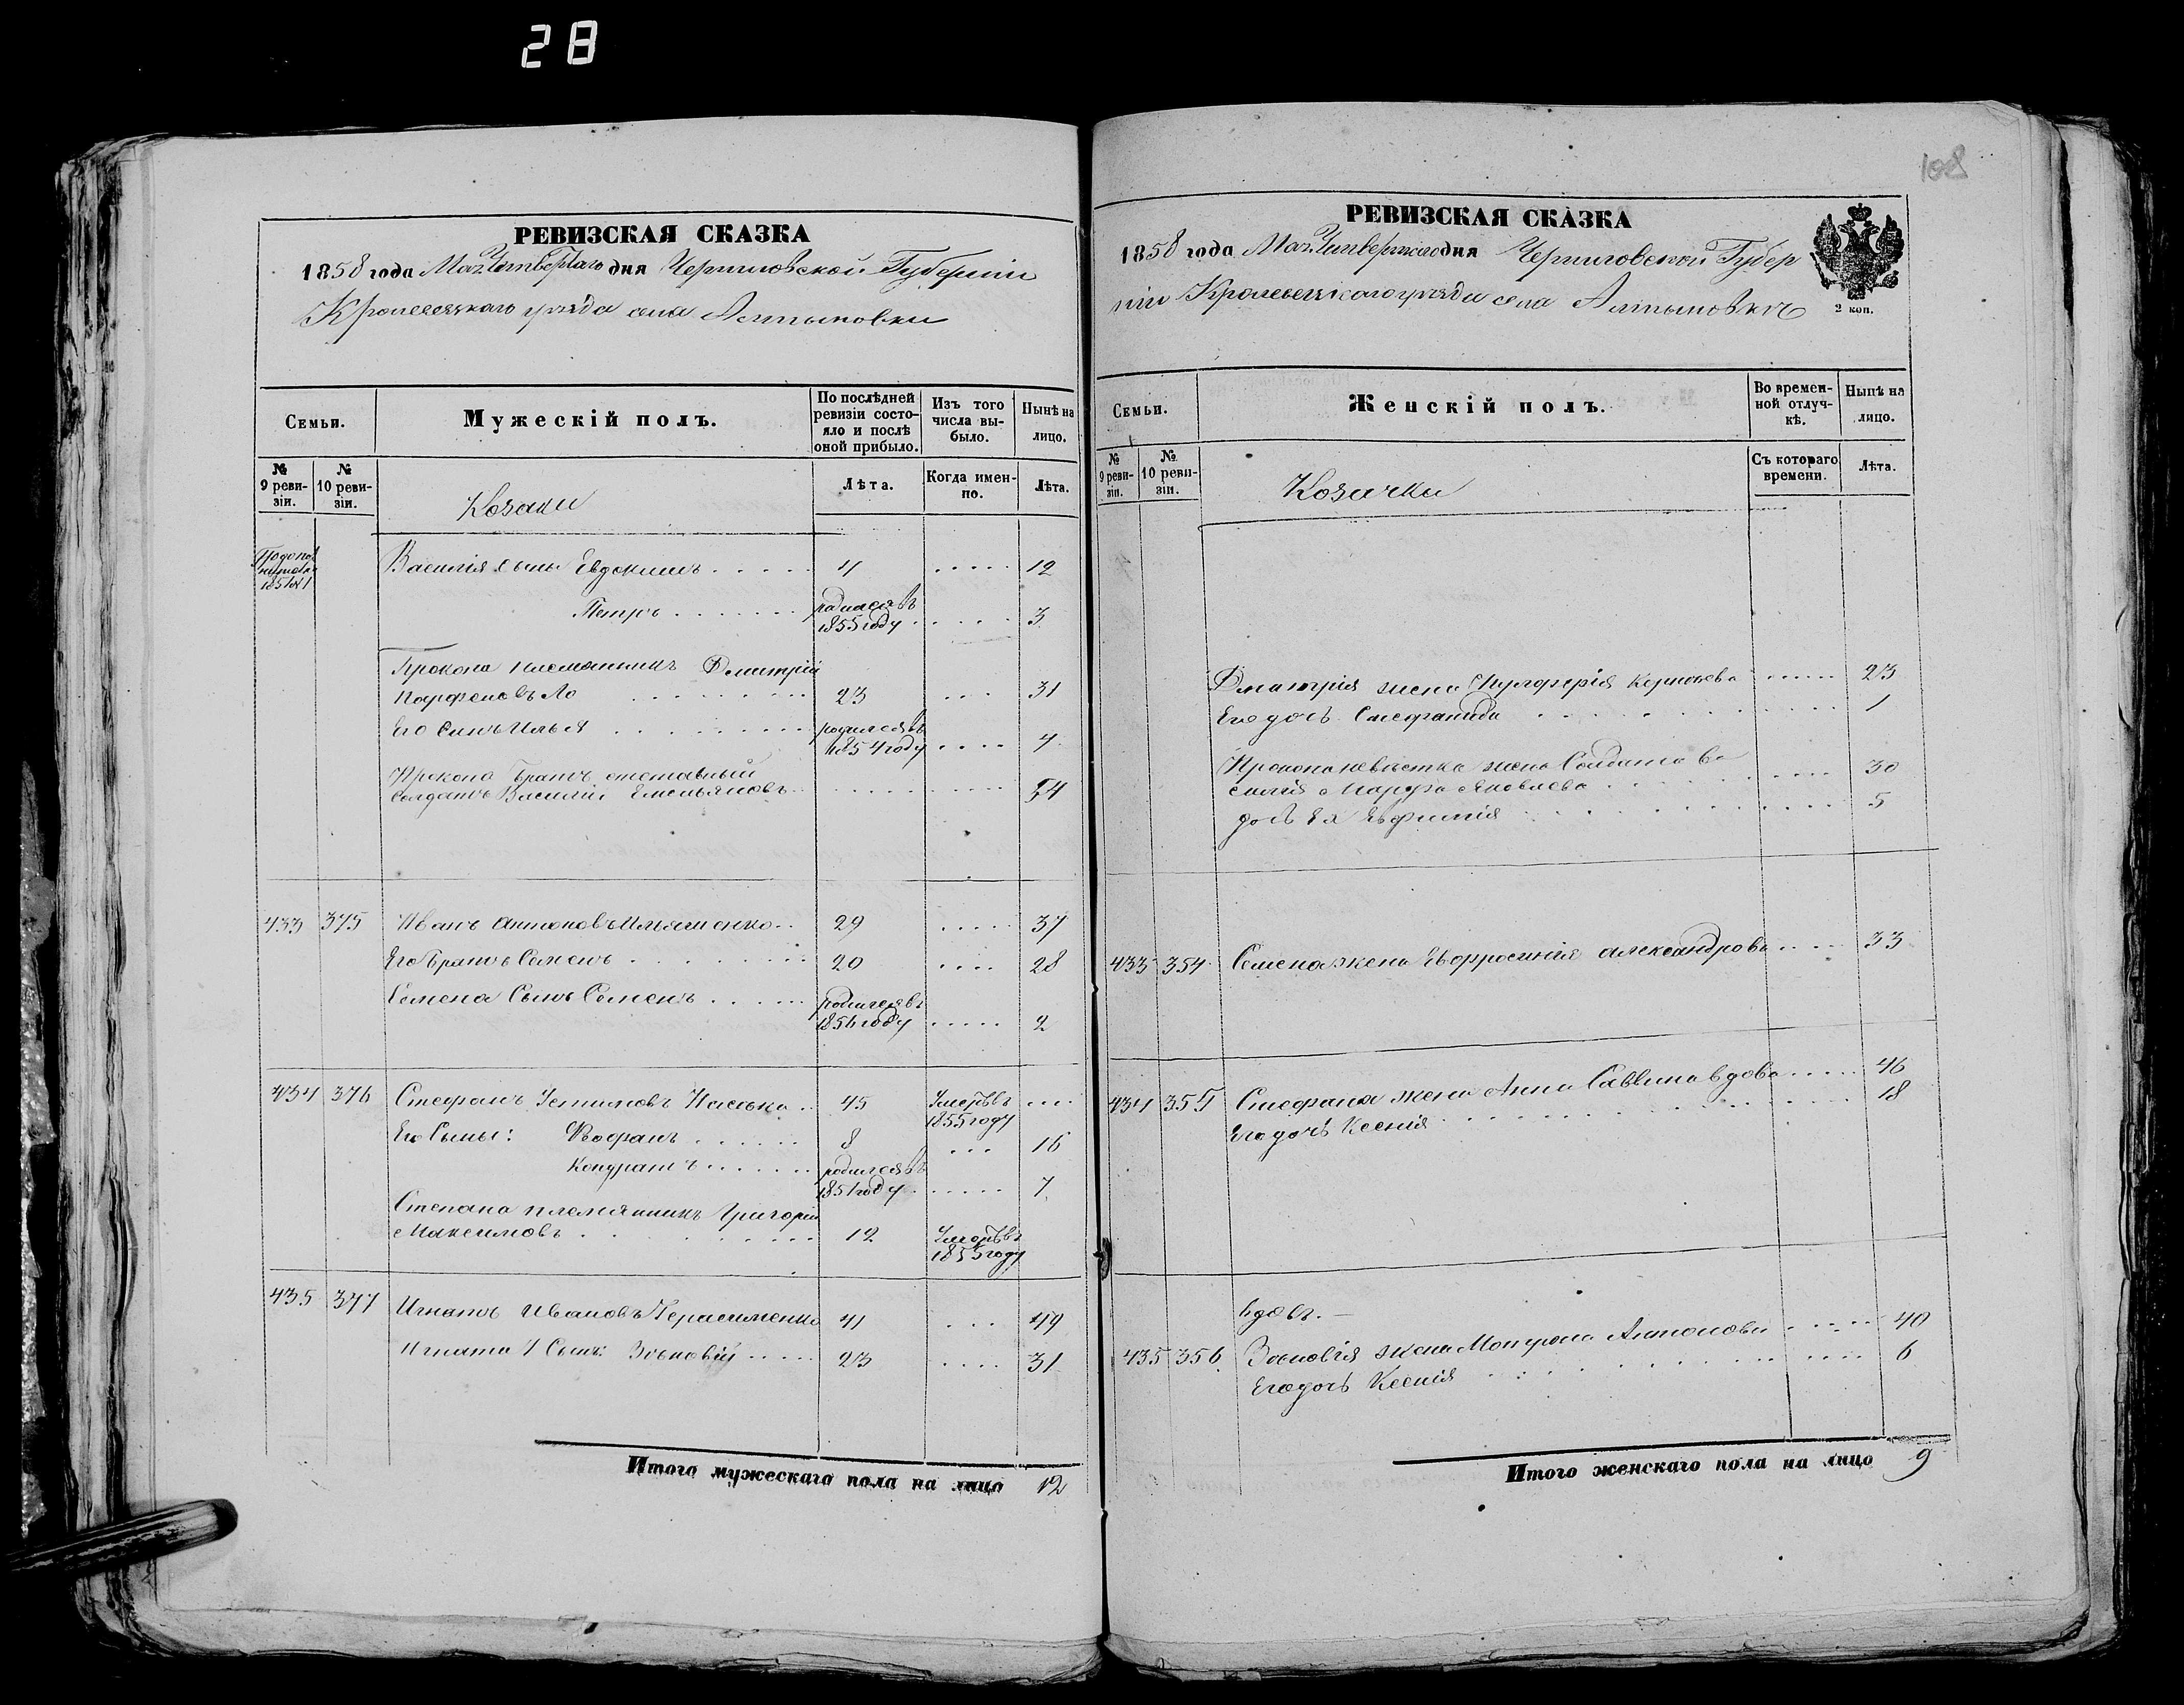 28
108
РЕВИЗСКАЯ СКАЗКА
1858 года Маія Четвертаго дня Черниговской Губерніи
Кролевецкаго уѣзда села Алтыновки
Семьи.
Мужескій полъ.
По послѣдней ревизіи состояло и послѣ оной прибыло.
Изъ того числа выбыло.
Нынѣ на лицо.
№ 9 ревизіи.
№ 10 ревизіи.
Козаки
Лѣта.
Когда именно.
Лѣта.
Василія сыны Евдокимъ 4 12
Петръ родился въ 1855 году 3
Прокопа племянникъ Дмитрій
23 31
Его Сынъ Илья родился въ 1854 году 4
Прокопа Братъ отставный
Солдатъ Василій Емельяновъ 54
433 375 Иванъ Антоновъ Ильяшенко 29 37
Его Братъ Семенъ 20 28
Семена Сынъ Семенъ родился въ 1856 году 2
434 376 Стефанъ Устимовъ 45 Умеръ въ 1855 году
Его Сыны: 8 16
Кондратъ родился въ 1851 году 7
Степана племянникъ Григорій
Максимовъ 12 Умеръ въ 1855 году
435 377 Игнатъ Ивановъ Герасименко 41 49
Игната 1 Сынъ Зѣновій 23 31
Итого мужескаго пола на лицо 12
РЕВИЗСКАЯ СКАЗКА
1858 года Маія Четвертаго дня Черниговской Губер
ніи Кролевецкаго уѣзда села Алтыновки
2 коп.
Семьи.
Женскій полъ.
Во временной отлучкѣ.
Нынѣ на лицо.
№ 9 ревизіи.
№ 10 ревизіи.
Козачки
Съ котораго времени.
Лѣта.
Дмитрія жена Пулферія 23
Его дочь Стефанида 1
Прокопа невѣстка жена Солдата Ва
силія Марфа Яковлева 30
дочь Ея Ефимія 5
433 354 Семена жена Евфросинія Александрова 33
434 355 Стефана жена Анна Саввина вдова 46
Его дочь Ксенія 18
вдовъ.
435 356 Зѣновія жена Антонова 40
Его дочь Ксенія 6
Итого женскаго пола на лицо 9